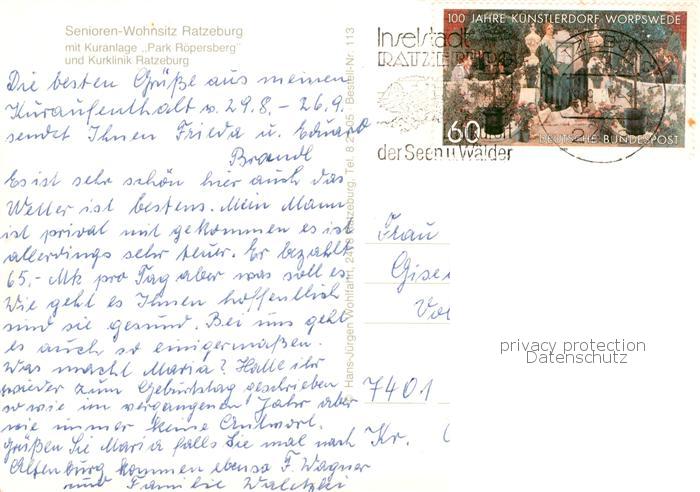 Senioren-Wohnsitz Ratzeburg
mit Kuranlage „Park Röpersberg"
und Kurklinik Ratzeburg
Die besten Grüße aus meinem
Kuraufenthalt v. 29.8. - 26.9.
sendet Ihnen Frieda u. Eduard
Brandl
Es ist sehr schön hier auch das
Wetter ist bestens. Mein Mann
ist privat mit gekommen es ist
allerdings sehr teuer. Er bezahlt
65,- Mk pro Tag aber was soll es.
Wie geht es Ihnen hoffentlich
sind sie gesund. Bei uns geht
es auch so einigermaßen.
Was macht Maria? Hatte ihr
wieder zum Geburtstag geschrieben
sowie im vergangenen Jahr aber
wie immer keine Antwort.
Grüßen Sie Maria falls Sie mal nach
Altenburg kommen ebenso F. Wagner
und Familie
Hans-Jürgen Wohlfahrt, Ratzeburg, Tel. Bestell-Nr. 113
Inselstadt
RATZEBURG
der Seen u. Wälder
100 JAHRE KÜNSTLERDORF WORPSWEDE
60
DEUTSCHE BUNDESPOST
Frau
7401
Kr.
privacy protection
Datenschutz